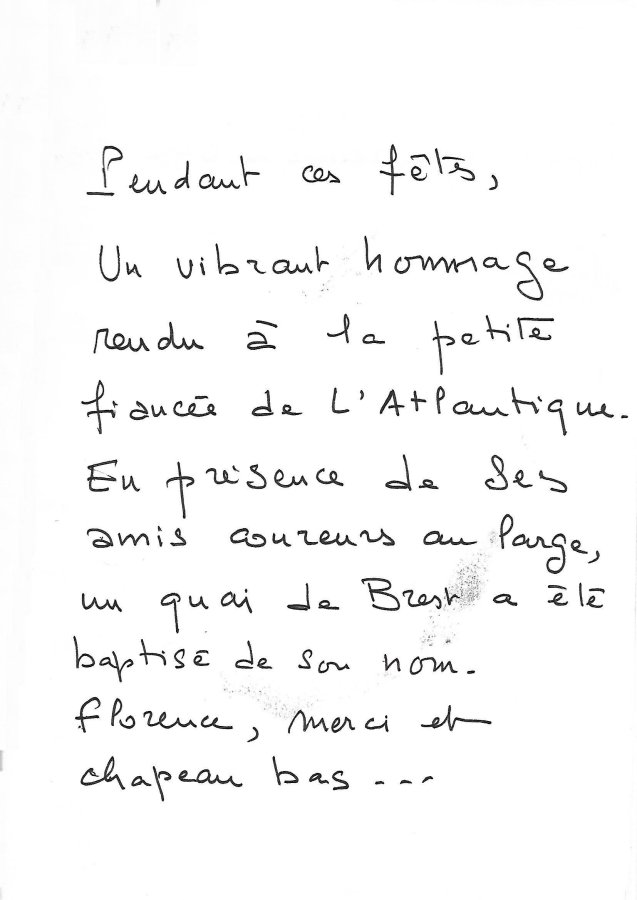 Pendant ces fêtes,
Un vibrant hommage
rendu à la petite
fiancée de L'Atlantique.
En présence de ses
amis coureurs au large,
un quai de Brest a été
baptisé de son nom.
Florence, merci et
chapeau bas ...